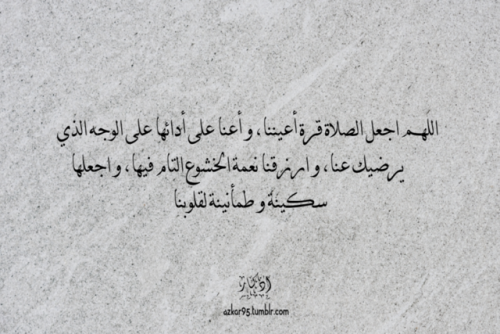 اللهم اجعل الصلاة قرة أعيننا، وأعنا على أدائها على الوجه الذي
يرضيك عنا، وارزقنا نعمة الخشوع التام فيها، واجعلها
سكينة وطمأنينة لقلوبنا
أذكار
azkar95.tumblr.com